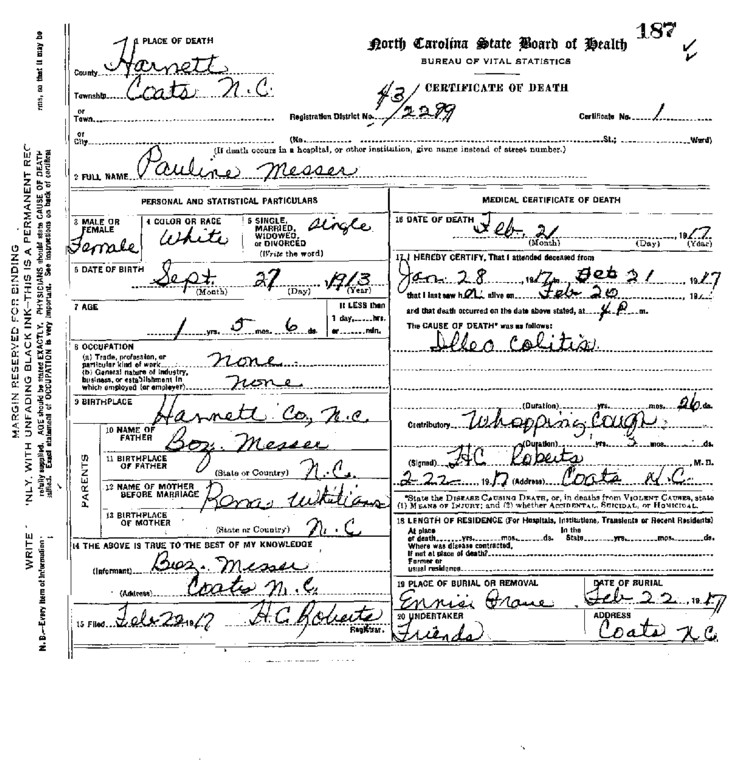 187
1 PLACE OF DEATH
North Carolina State Board of Health
BUREAU OF VITAL STATISTICS
County Harnett
CERTIFICATE OF DEATH
Township Coats N.C.
or
Town
Registration District No. 43/2299
Certificate No. 1
or
City
(No. St.; Ward)
(If death occurs in a hospital, or other institution, give name instead of street number.)
2 FULL NAME Pauline Messer
PERSONAL AND STATISTICAL PARTICULARS
3 MALE OR FEMALE Female
4 COLOR OR RACE White
5 SINGLE, MARRIED, WIDOWED, or DIVORCED single
(Write the word)
6 DATE OF BIRTH Sept. 27 1913
(Month) (Day) (Year)
7 AGE
1 yrs. 5 mos. 6 ds.
If LESS than
1 day, hrs.
or min.
8 OCCUPATION
(a) Trade, profession, or
particular kind of work none
(b) General nature of industry,
business, or establishment in
which employed (or employer) none
9 BIRTHPLACE Harnett Co, N.C.
PARENTS
10 NAME OF FATHER Boz. Messer
11 BIRTHPLACE OF FATHER
(State or Country) N.C.
12 NAME OF MOTHER BEFORE MARRIAGE Rena
13 BIRTHPLACE OF MOTHER
(State or Country) N.C
14 THE ABOVE IS TRUE TO THE BEST OF MY KNOWLEDGE
(Informant) Boz. Messer
(Address) Coats N.C.
15 Filed Feb 22 1917 H.C. Roberts
Registrar.
MEDICAL CERTIFICATE OF DEATH
16 DATE OF DEATH Feb. 21 1917.
(Month) (Day) (Year)
17 I HEREBY CERTIFY, That I attended deceased from
Jan 28 1917, to Feb 21, 1917
that I last saw her alive on Feb 20, 191
and that death occurred on the date above stated, at 4 P. m.
The CAUSE OF DEATH* was as follows:
Illeo Colitis
(Duration) yrs. mos. 26 ds.
Contributory Whopping Cough
(Duration) yrs. mos. ds.
(Signed) HC Roberts, M. D.
2-22-1917 (Address) Coats N.C.
*State the DISEASE CAUSING DEATH, or, in deaths from VIOLENT CAUSES, state
(1) MEANS OF INJURY; and (2) whether ACCIDENTAL, SUICIDAL, or HOMICIDAL.
18 LENGTH OF RESIDENCE (For Hospitals, Institutions, Transients or Recent Residents)
At place of death yrs. mos. ds. In the State yrs. mos. ds.
Where was disease contracted,
If not at place of death?
Former or
usual residence
19 PLACE OF BURIAL OR REMOVAL
Ennis Grave
DATE OF BURIAL
Feb 22, 1917
20 UNDERTAKER
Friends
ADDRESS
Coats N.C
MARGIN RESERVED FOR BINDING
WRITE NLY, WITH UNFADING BLACK INK—THIS IS A PERMANENT REC
N. B.—Every item of information refully supplied. AGE should be stated EXACTLY. PHYSICIANS should state CAUSE OF DEATH rms, so that it may be
ssified. Exact statement of OCCUPATION is very important. See instructions on back of certificat